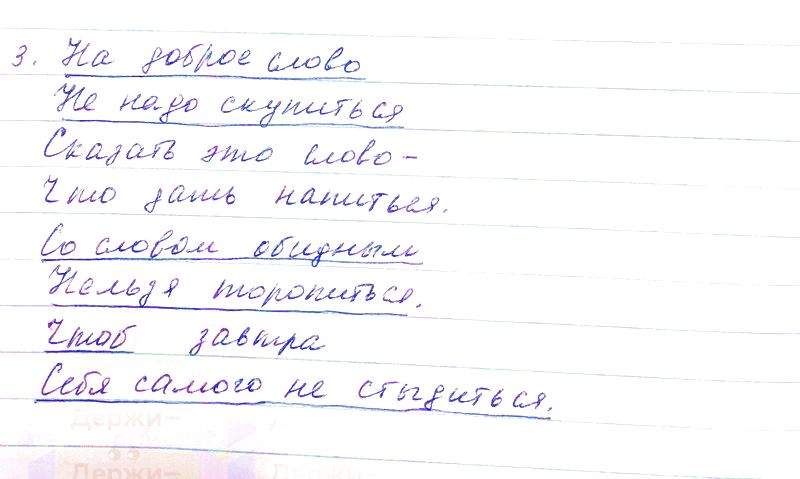 3. На доброе слово
Не надо скупиться
Сказать это слово –
Что дать напиться.
Со словом обидным
Нельзя торопиться.
Чтоб завтра
Себя самого не стыдиться.
Держи–
Держи–
Держи–